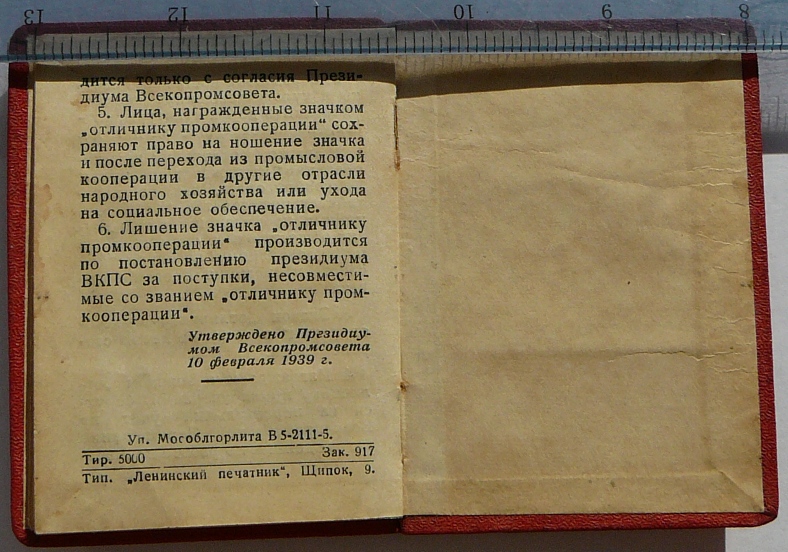 13 12 11 10 9 8
дится только с согласия Прези-
диума Всекопромсовета.
5. Лица, награжденные значком
„отличнику промкооперации“ сох-
раняют право на ношение значка
и после перехода из промысловой
кооперации в другие отрасли
народного хозяйства или ухода
на социальное обеспечение.
6. Лишение значка „отличнику
промкооперации“ производится
по постановлению президиума
ВКПС за поступки, несовмести-
мые со званием „отличнику пром-
кооперации“.
Утверждено Президиу-
мом Всекопромсовета
10 февраля 1939 г.
Уп. Мособлгорлита В 5-2111-5.
Тир. 5000 Зак. 917
Тип. „Ленинский печатник“, Щипок, 9.